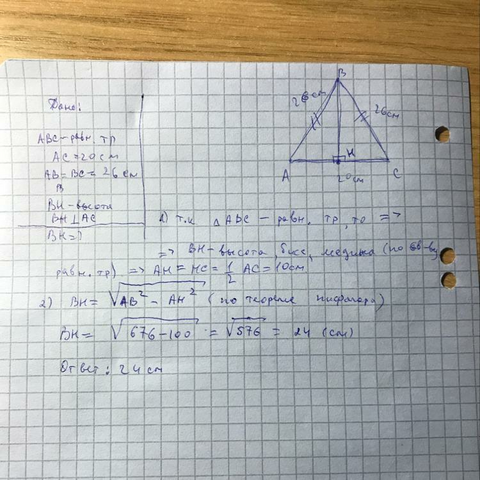 Дано:
ABC - равн. тр
AC = 20 см
AB = BC = 26 см
B
BH - высота
BH ⊥ AC
BH = ?
B
26 см
26 см
A
H
20 см
C
1) т.к △ABC - равн. тр, то =>
=> BH - высота, бисс, медиана (по св-ву
равн. тр) => AH = HC = 1/2 AC = 10 см
2) BH = √(AB² - AH²) (по теореме пифагора)
BH = √(676-100) = √576 = 24 (см)
Ответ: 24 см